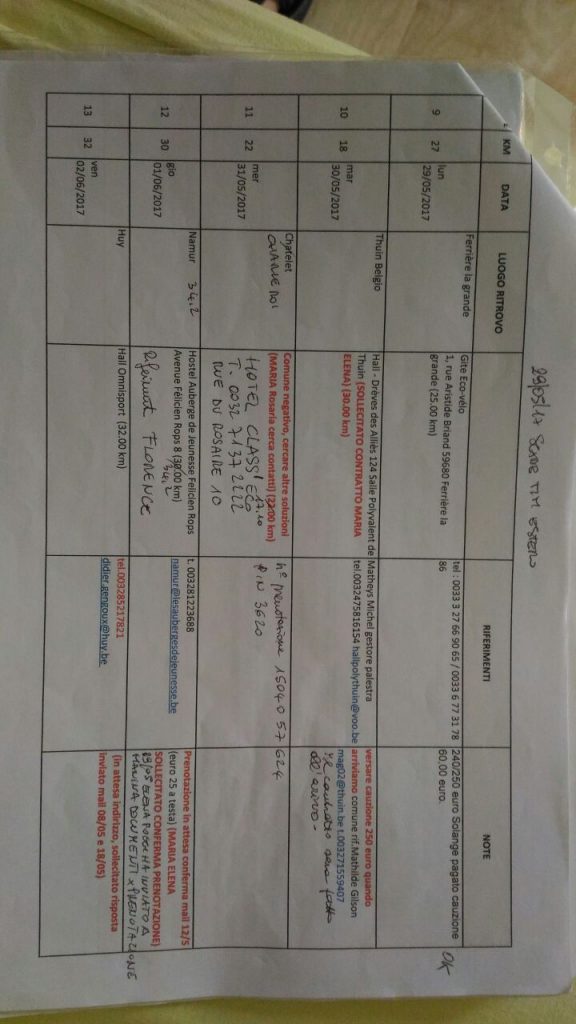 29/05/17
KM DATA LUOGO RITROVO RIFERIMENTI NOTE
9 27 lun 29/05/2017 Ferrière la grande
Gite Eco-vélo
1, rue Aristide Briand 59680 Ferrière la
grande (25.00 km)
tel : 0033 3 27 66 90 65 / 0033 6 77 31 78
86
240/250 euro Solange pagato cauzione
60,00 euro.
OK
10 18 mar 30/05/2017 Thuin Belgio
Hall - Drèves des Alliés 124 Salle Polyvalent de
Thuin (SOLLECITATO CONTRATTO MARIA
ELENA) (30.00 km)
Matheys Michel gestore palestra
tel.0032475816154 hallpolythuin@voo.be
versare cauzione 250 euro quando
arriviamo comune rif.Mathilde Gilson
mag02@thuin.be t.003271559407
contratto sarà fatto
all'arrivo -
11 22 mer 31/05/2017 Chatelet
CHARLEROI
Comune negativo, cercare altre soluzioni
(MARIA Rosaria cerca contatti) (22.00 km)
17.10
HOTEL CLASS'ECO
T. 0032 71372222
RUE DU ROSAIRE 10
n° prenotazione 1504057624
PIN 3620
12 30 gio 01/06/2017 Namur 34,2
Hostel Auberge de Jeunesse Felicien Rops
Avenue Félicien Rops 8 (30.00 km)
34,2
Riferimat FLORENCE
t. 003281223688
namur@lesaubergesdejeunesse.be
Prenotazione in attesa conferma mail 12/5
(euro 25 a testa) (MARIA ELENA
SOLLECITATO CONFERMA PRENOTAZIONE)
HA INVIATO A
MARINA DOCUMENTI x PRENOTAZIONE
13 32 ven 02/06/2017 Huy
Hall Omnisport (32.00 km)
tel.003285217821
didier.gengoux@huy.be
(in attesa indirizzo, sollecitato risposta
inviato mail 08/05 e 18/05)